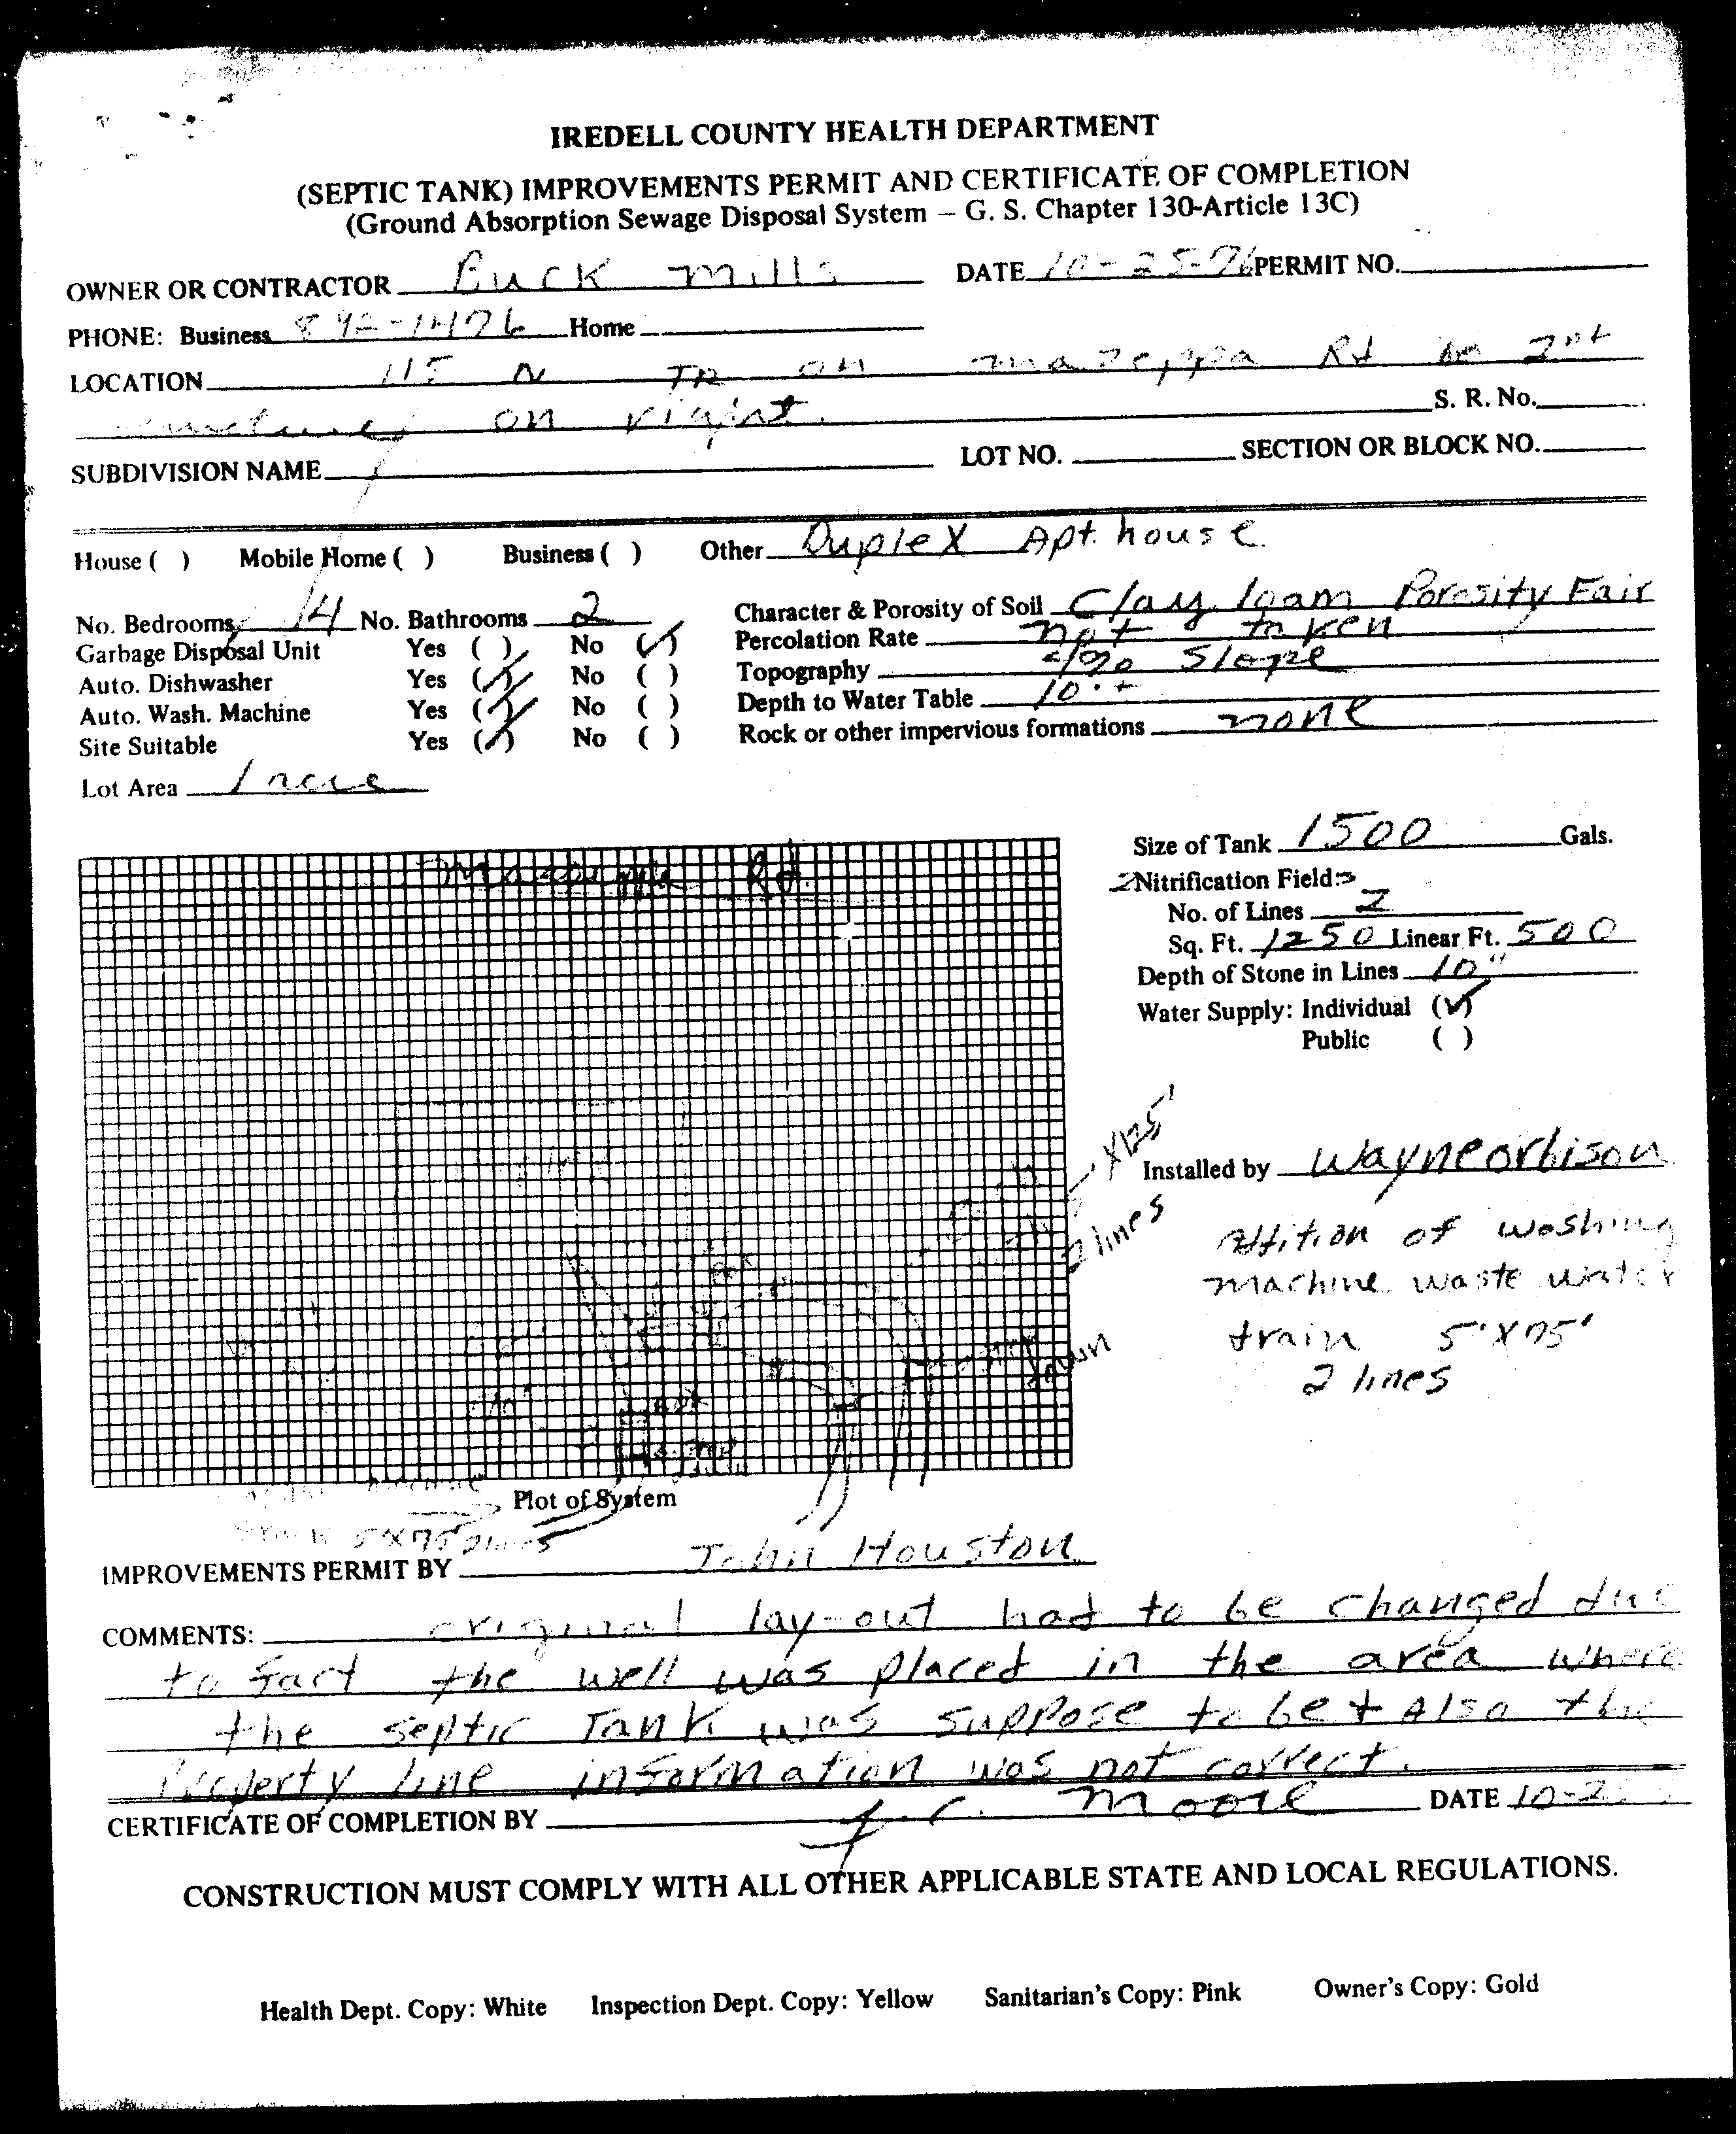 IREDELL COUNTY HEALTH DEPARTMENT
(SEPTIC TANK) IMPROVEMENTS PERMIT AND CERTIFICATE OF COMPLETION
(Ground Absorption Sewage Disposal System – G. S. Chapter 130-Article 13C)
OWNER OR CONTRACTOR Buck Mills DATE 10-25-76 PERMIT NO.
PHONE: Business 892-1476 Home
LOCATION 115 N TR on mazeppa Rd 2nd
on right. S. R. No.
SUBDIVISION NAME LOT NO. SECTION OR BLOCK NO.
House ( ) Mobile Home ( ) Business ( ) Other Duplex Apt. house
No. Bedrooms 4 No. Bathrooms 2 Character & Porosity of Soil Clay loam Porosity Fair
Garbage Disposal Unit Yes ( ) No (✓) Percolation Rate not taken
Auto. Dishwasher Yes (✓) No ( ) Topography slope
Auto. Wash. Machine Yes (✓) No ( ) Depth to Water Table 10'+
Site Suitable Yes (✓) No ( ) Rock or other impervious formations none
Lot Area 1 acre
Size of Tank 1500 Gals.
Nitrification Field:
No. of Lines 2
Sq. Ft. 1250 Linear Ft. 500
Depth of Stone in Lines 10"
Water Supply: Individual (✓)
Public ( )
Rd.
X125'
2 lines
down
Installed by Wayne orbison
attition of washing
machine waste water
train 5'X75'
2 lines
Plot of System
5X75 2 lines
IMPROVEMENTS PERMIT BY John Houston
COMMENTS: original lay-out had to be changed due
to fact the well was placed in the area where
the septic Tank was suppose to be + Also the
Property line information was not correct.
CERTIFICATE OF COMPLETION BY J. C. Moore DATE 10-2
CONSTRUCTION MUST COMPLY WITH ALL OTHER APPLICABLE STATE AND LOCAL REGULATIONS.
Health Dept. Copy: White Inspection Dept. Copy: Yellow Sanitarian's Copy: Pink Owner's Copy: Gold